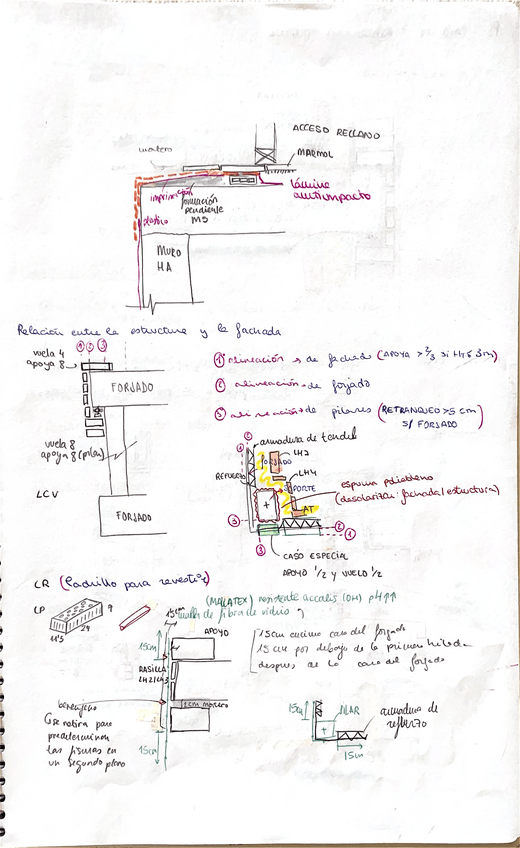 ACCESO RELLANO
mortero
MARMOL
imprimación
lámina
antiimpacto
formación
pendiente
M5
plástico
MURO
HA
Relación entre la estructura y la fachada
① ② ③
vuela 4
apoya 8
FORJADO
① alineación → de fachada (APOYA > 2/3 si H ≤ 3m)
② alineación → de forjado
③ alineación → de pilares (RETRANQUEO > 5 cm
S/ FORJADO
vuela 8
apoya 8 (pilar)
armadura de tendel
LH7
FORJADO
REFUERZO
LH4
SOPORTE
espuma polietileno
(desolarizar fachada/estructura)
LCV
AT
FORJADO
③
②
①
③
CASO ESPECIAL
APOYO 1/2 y VUELO 1/2
LR (Ladrillo para revestir)
(MALLATEX) resistente accalis (OH) pH↑↑
LP
15cm
malla de fibra de vidrio
9
24
11'5
APOYO
15cm
15cm encima cara del forjado
15 cm por debajo de la primera hilada
despues de la cara del forjado
RASILLA
LH2/LH3
berenjeno
2cm mortero
Se retira para
predeterminar
las fisuras en
un segundo plano
15cm
15cm
PILAR
armadura de
refuerzo
15cm